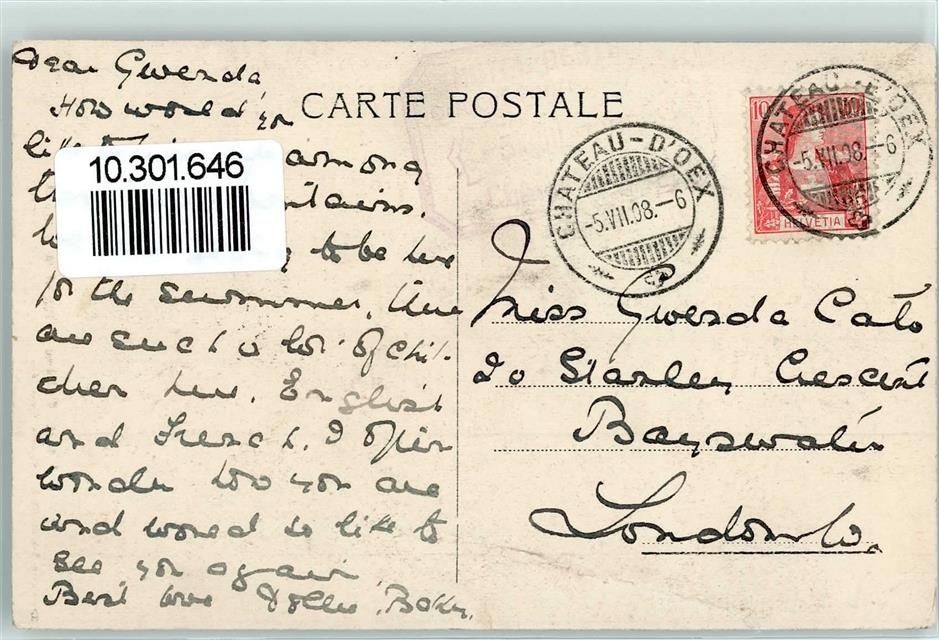 Dear Gwenda,
How would you
like to among
mountains.
to be here
for the summer, there
are such a lot of chil-
dren here, English
and French. I often
wonder how you are
and would so like to
see you again.
Best love Baker.
10.301.646
CARTE POSTALE
CHATEAU-D'OEX
-5.VII.08.-6
10
HELVETIA
CHATEAU-D'OEX
-5.VII.08.-6
Miss Gwenda Cato
20 Stanley Crescent
Bayswater
London W.